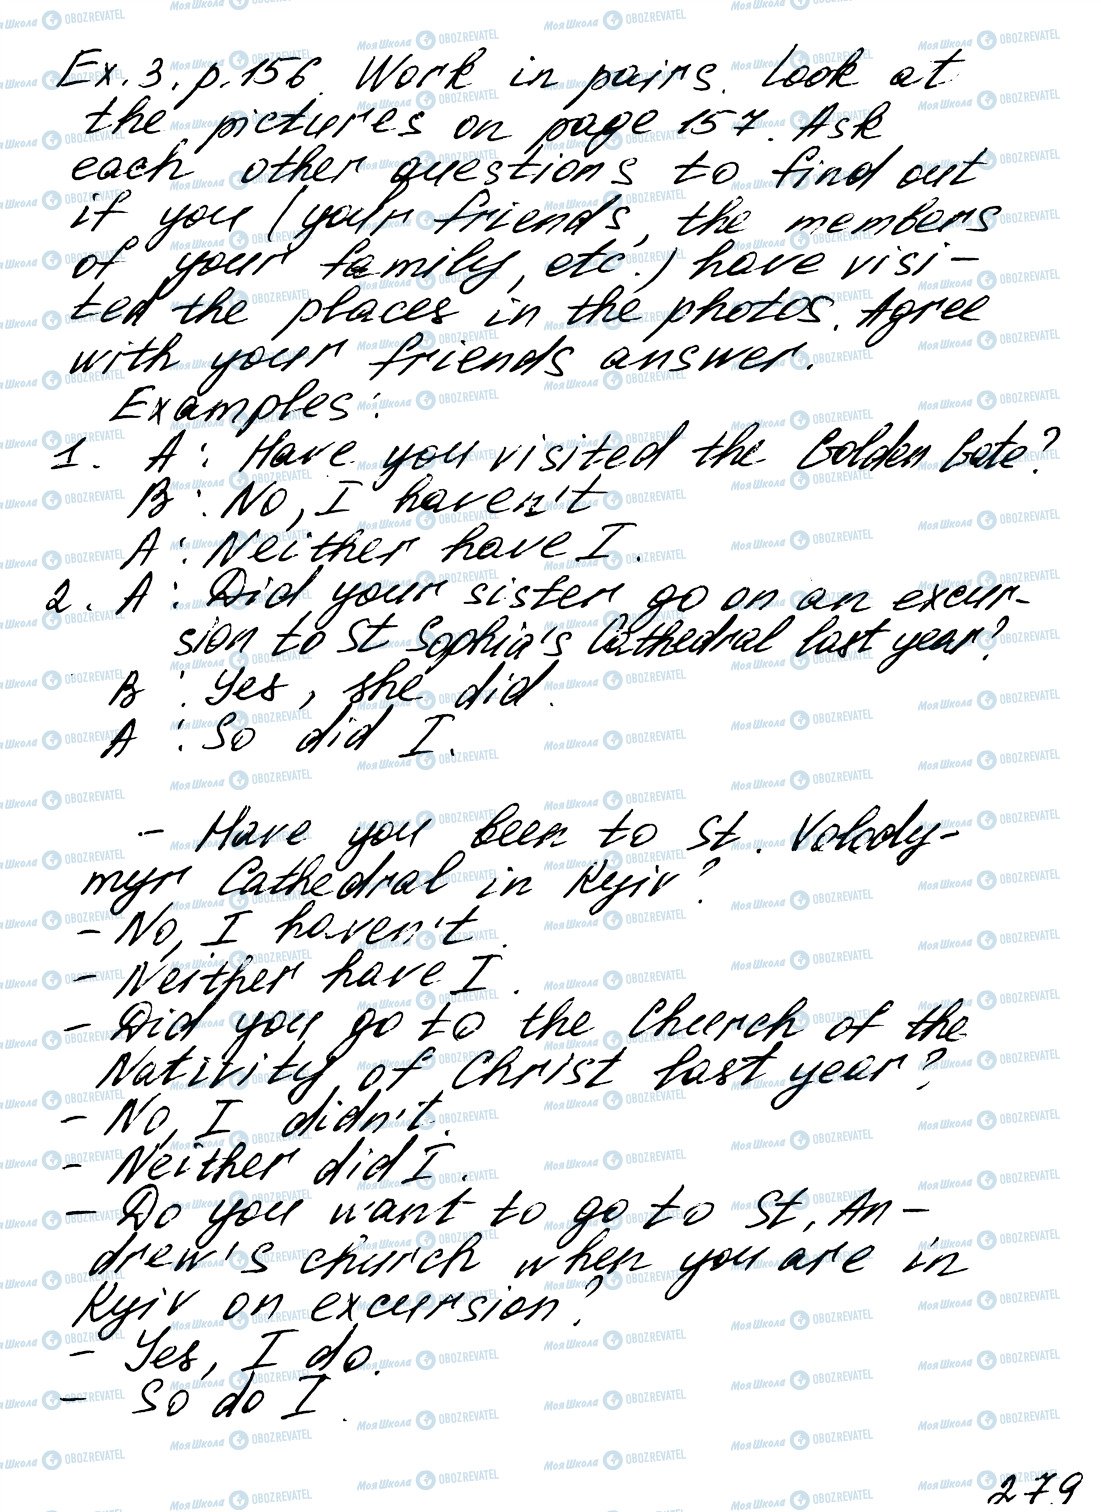 Ex. 3. p. 156. Work in pairs. Look at
the pictures on page 157. Ask
each other questions to find out
if you (your friends, the members
of your family, etc.) have visi-
ted the places in the photos. Agree
with your friends answer.
Examples:
1. A: Have you visited the Golden Gate?
B: No, I haven't
A: Neither have I.
2. A: Did your sister go on an excur-
sion to St Sophia's Cathedral last year?
B: Yes, she did.
A: So did I.
- Have you been to St. Volody-
myr Cathedral in Kyiv?
- No, I haven't.
- Neither have I.
- Did you go to the Church of the
Nativity of Christ last year?
- No, I didn't.
- Neither did I.
- Do you want to go to St. An-
drew's church when you are in
Kyiv on excursion?
- Yes, I do.
- So do I.
279
МояШкола OBOZREVATEL